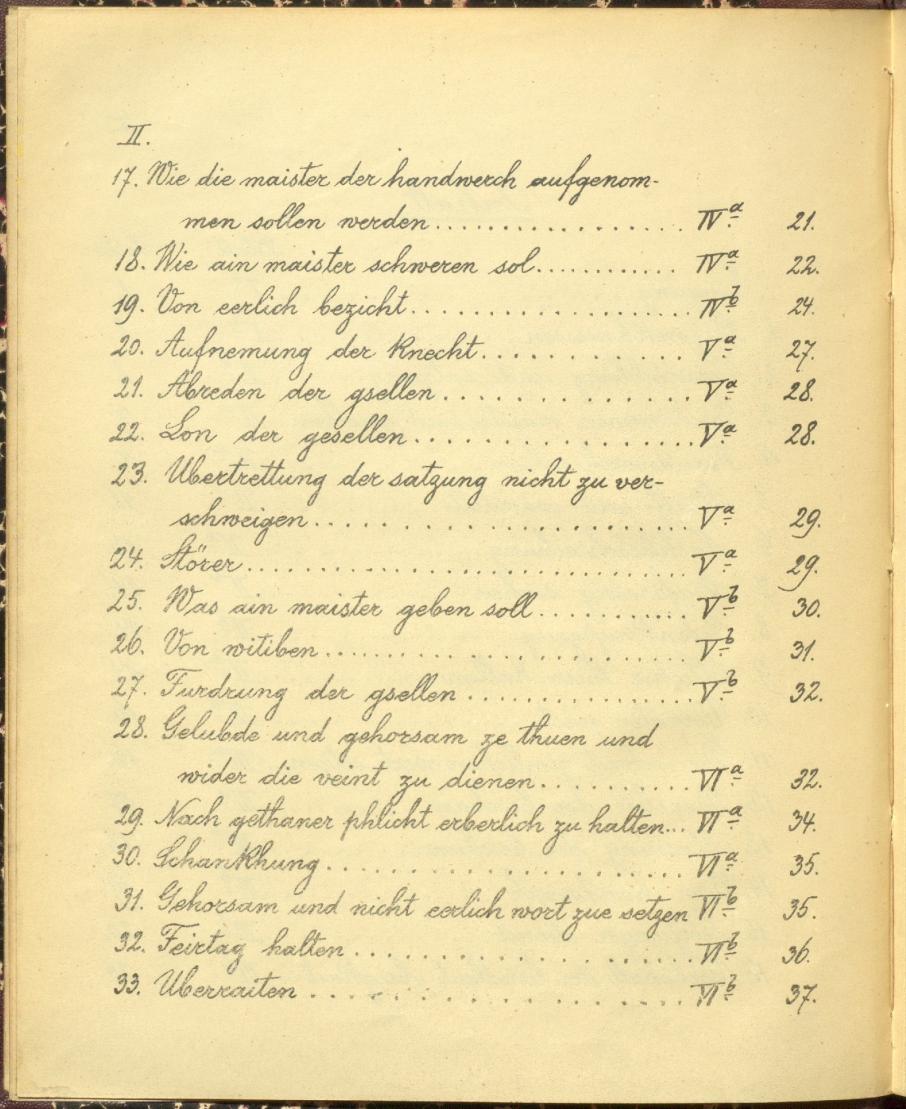 II.
17. Wie die maister der handwerch aufgenom-
men sollen werden.................. IVa. 21.
18. Wie ain maister schweren sol............ IVa. 22.
19. Von eerlich bezicht.................... IVb. 24.
20. Aufnemung der Knecht............ Va. 27.
21. Abreden der gsellen.............. Va. 28.
22. Lon der gesellen.................... Va. 28.
23. Ubertrettung der satzung nicht zu ver-
schweigen.......................... Va. 29.
24. Störer.............................. Va. 29.
25. Was ain maister geben soll........... Vb. 30.
26. Von witiben........................ Vb. 31.
27. Furdrung der gsellen............... Vb. 32.
28. Gelubde und gehorsam ze thuen und
wider die veint zu dienen........... VIa. 32.
29. Nach gethaner phlicht erberlich zu halten... VIa. 34.
30. Schankhung........................ VIa. 35.
31. Gehorsam und nicht eerlich wort zue setzen VIb. 35.
32. Feirtag halten..................... VIb. 36.
33. Uberraiten........................ VIb. 37.